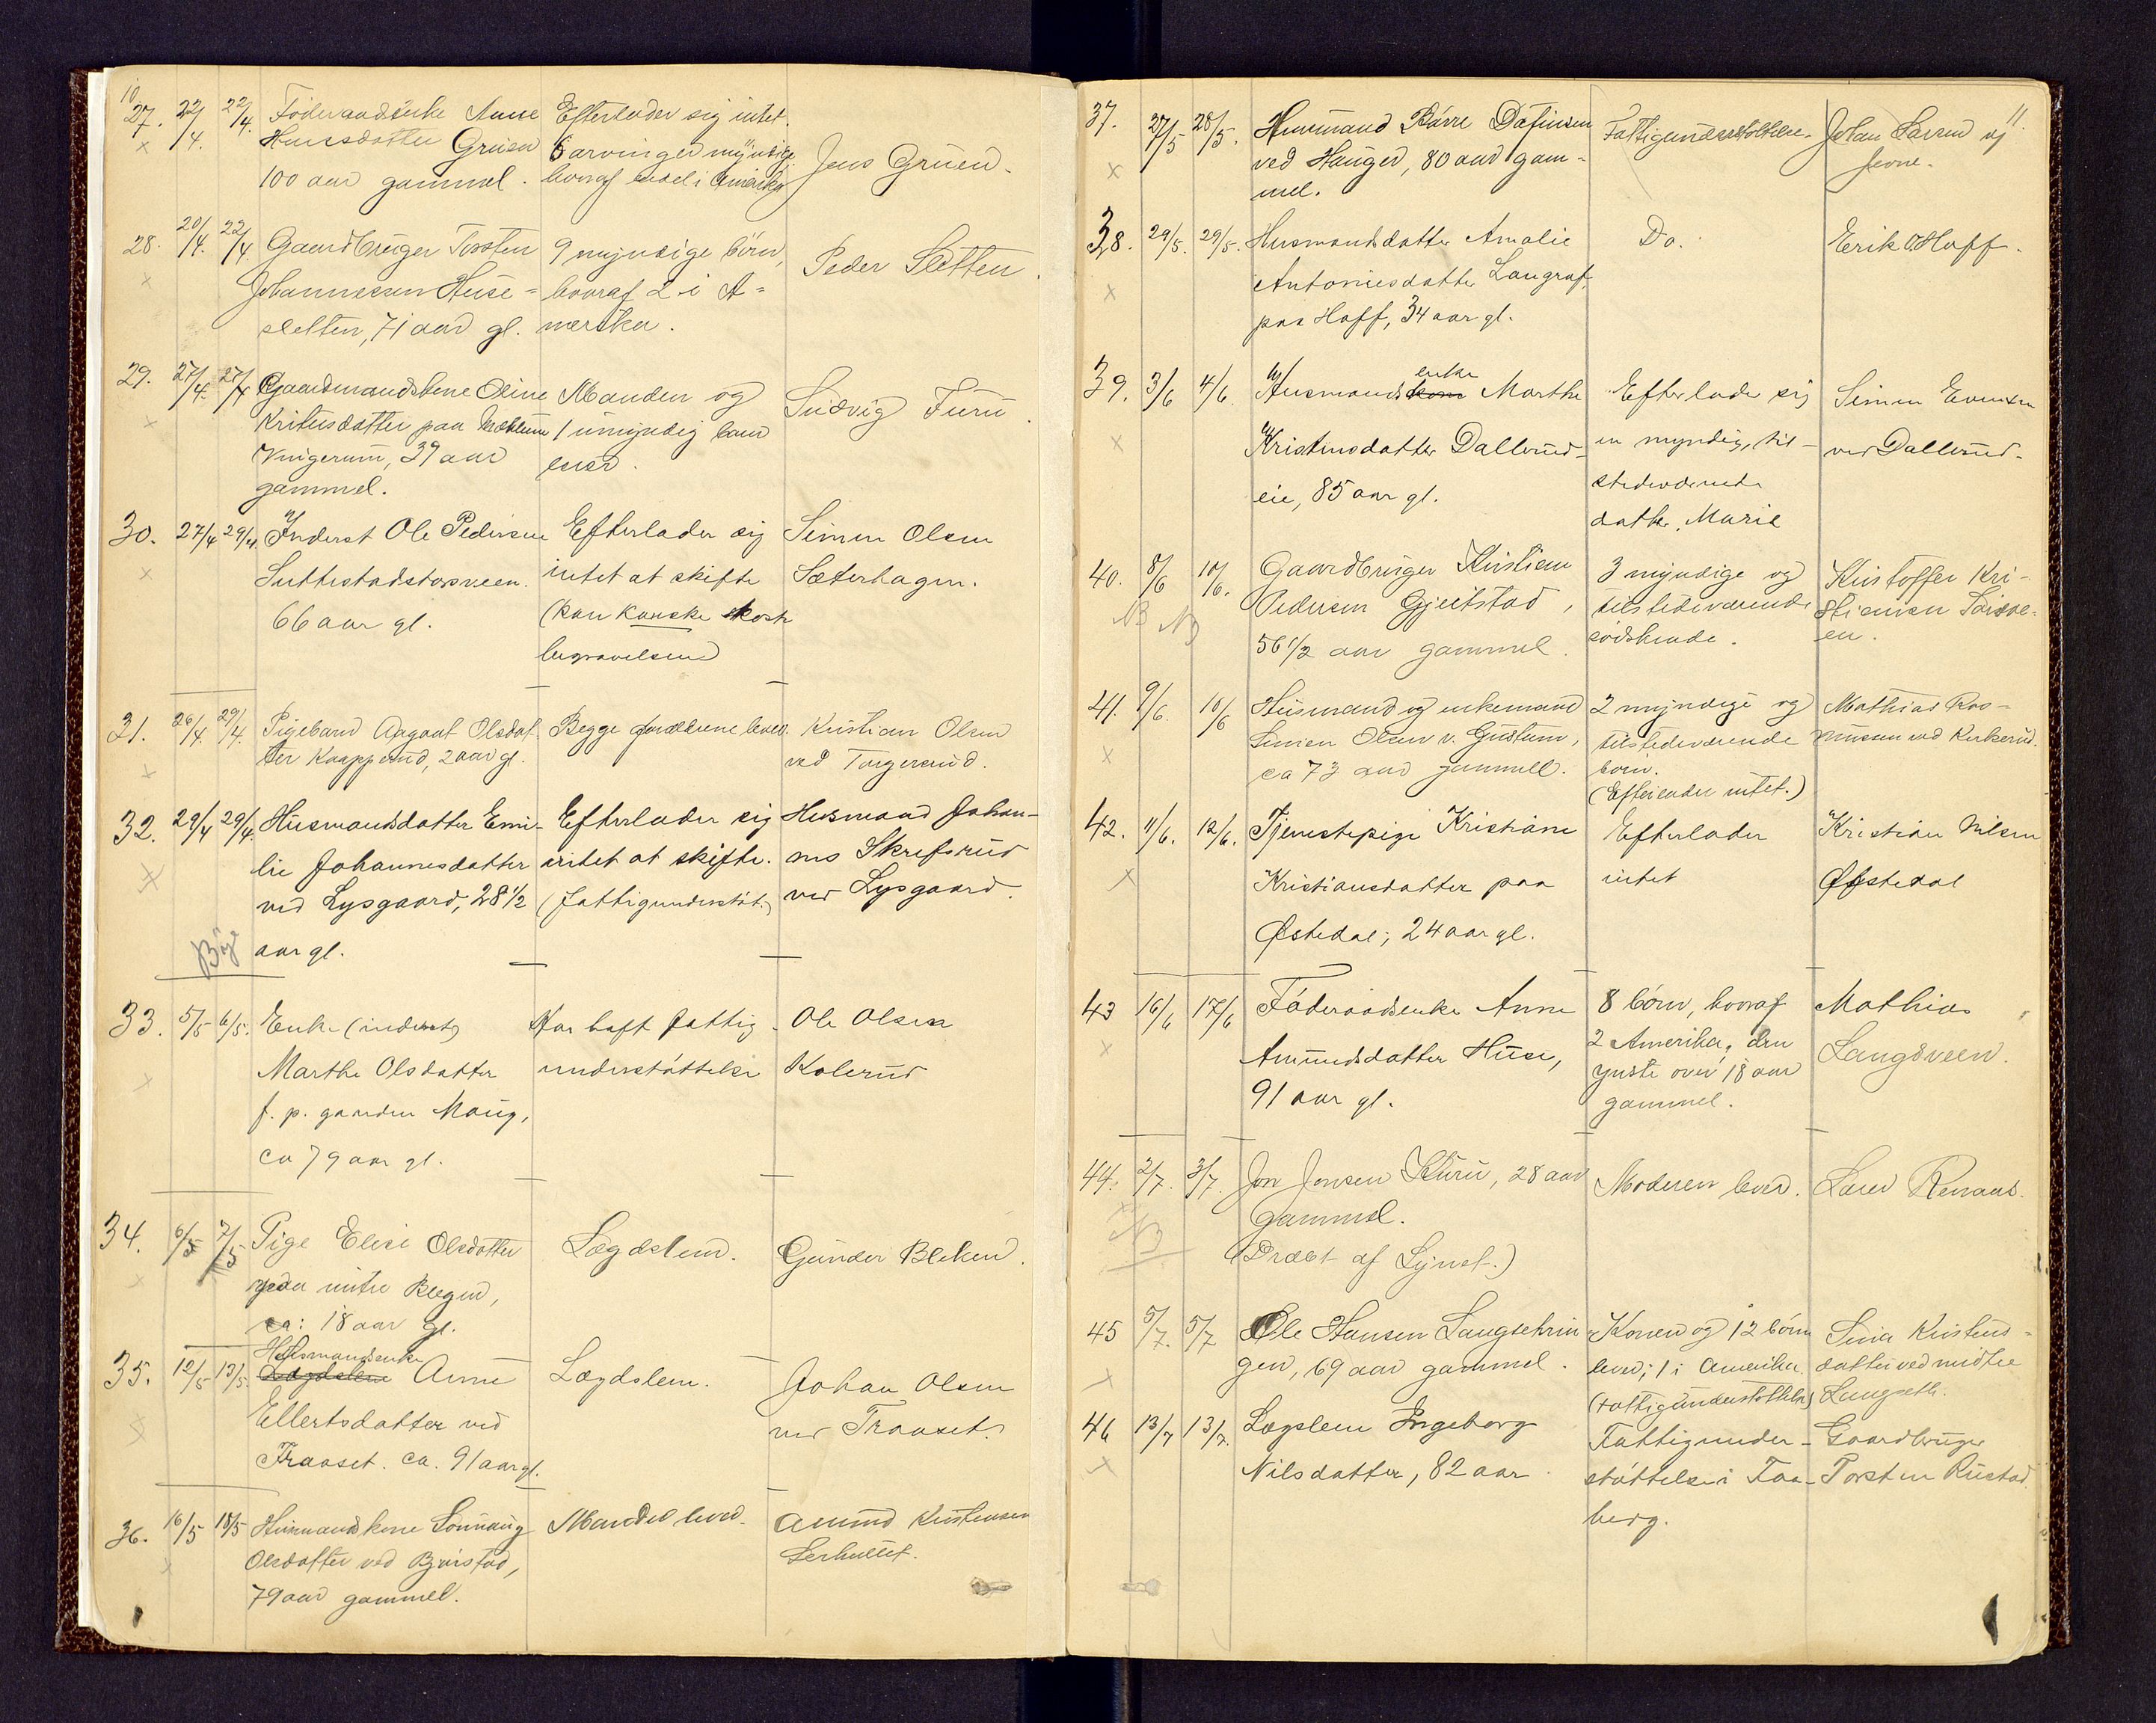 10
27. 22/4. 22/4. Föderaadsenke Anne Efterlader sig intet.
Hansdatter Gruen 6 arvinger myndige Jens Gruen.
100 aar gammel. hvoraf endel i Amerika
28. 20/4. 22/4. Gaardbruger Torsten 9 myndige börn, Peder Sletten.
Johannessen Huse= hvoraf 2 i A=
sletten, 71 aar gl. merika.
29. 27/4. 27/4 Gaardmandskone Oline Manden og Ludvig Furu
Kristensdatter paa 1 umyndig barn
39 aar lever.
gammel.
30. 27/4 29/4 Inderst Ole Pedersen Efterlader sig Simen Olsen
Suttestadstosveen. intet at skifte Sæterhagen.
66 aar gl. (kan kanske koste
begravelsen)
31. 26/4. 29/4. Pigebarn Aagaat Olsdat- Begge forældrene lever. Kristian Olsen
ter Knapperud, 2 aar gl. ved Torgerrud.
32. 29/4 29/4. Husmandsdatter Emi- Efterlader sig Husmand Johan-
lie Johannesdatter intet at skifte. nes Skrefsrud
ved Lysgaard, 28 1/2 (Fattigunderstöt.) ved Lysgaard.
aar gl.
33. 5/5 6/5. Enke (inderst) Har haft fattig- Ole Olsen
Marthe Olsdatter understöttelse Kolerud
f. p. gaarden Haug,
ca 79 aar gl.
34. 6/5 7/5 Pige Elise Olsdatter Lægdslem. Gunder Bleken.
paa nitre
ca: 18 aar gl.
Husmandsenke
35. 12/5 13/5. Lægdslem Anne Lægdslem. Johan Olsen
Ellertsdatter ved ved Traaset.
Traaset. ca. 91 aar gl.
36. 16/5 18/5 Husmandskone Lonnaug Manden lever. Amund Kristensen
Olsdatter ved Bjørstad,
79 aar gammel.
11.
37. 27/5 28/5. Husmand Börre Dafinsen Fattigunderstöttelse. Johan Larsen
ved Hauger, 80 aar gam-
mel.
38. 29/5. 29/5. Husmandsdatter Amalie Do. Erik O Hoff.
Antoniesdatter Langraf.
paa Hoff, 34 aar gl.
enke
39. 3/6 4/6 Husmandskone Marthe Efterlader sig Simen Evensen
Kristensdatter Dallerud- en myndig, til- ved Dallerud.
eie, 85 aar gl. stedeværende
datter, Marie
40. 8/6 10/6. Gaardbruger Kristian 3 myndige og Kristoffer Kri-
NB NB Pedersen Gjeitstad, tilstedeværende stiansen
56 1/2 aar gammel. södskende. en.
41. 9/6. 10/6 Husmand og enkemand 2 myndige og Mathias Ras-
Simen Olsen v. Gustum, tilstedeværende mussen ved Kirkerud.
ca 73 aar gammel. börn.
(Efterlader intet.)
42. 11/6. 12/6. Tjenestepige Kristiane Efterlader Kristian Nilsen
Kristiansdatter paa intet Østedal
Østedal, 24 aar gl.
43 16/6 17/6 Föderaadsenke Anne 8 börn, hvoraf Mathias
Amundsdatter Huse, 2 Amerika, den Langsveen.
91 aar gl. ynste over 18 aar
gammel.
44. 2/7. 3/7. Jon Jonsen Kuru, 28 aar Moderen lever.
NB gammel.
(Dræbt af Lynet.)
45 5/7. 5/7 Ole Hansen Langsethrin Konen og 12 börn Lina Kristens-
gen, 69 aar gammel. lever; 1 i Amerika datter ved midtre
(Fattigunderstöttelse) Langseth.
46 13/7 13/7. Lægslem Ingeborg Fattigunder- Gaardbruger
Nilsdatter, 82 aar. stöttelse i Faa- Torsten Rustad.
berg.